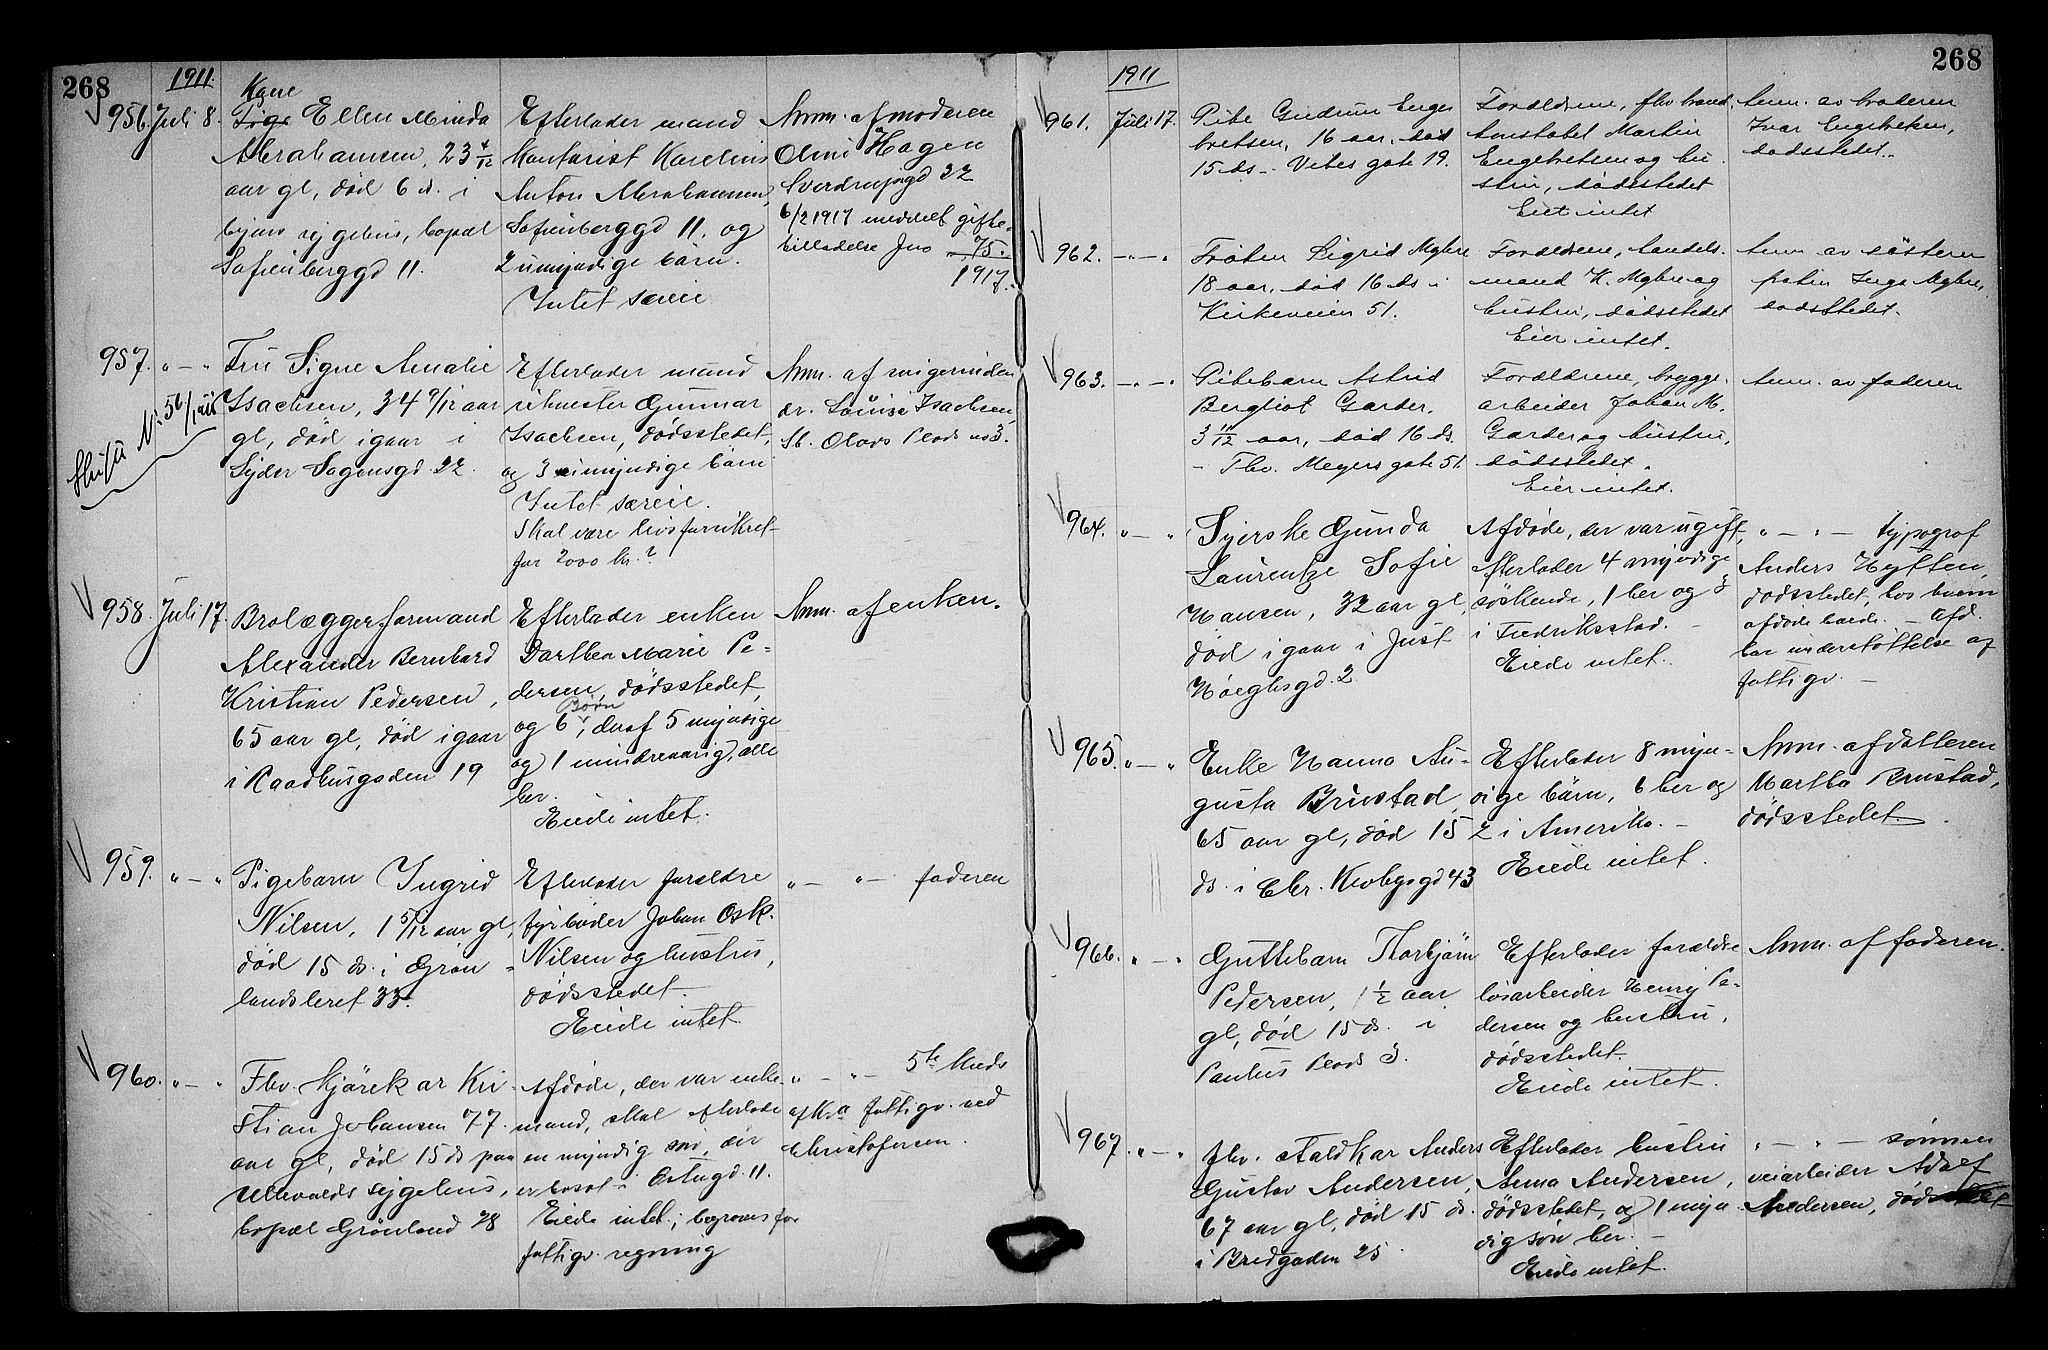 268
1911.
956. Juli 8.
Kone
Pige Ellen Minda
Abrahamsen, 23 4/12
aar gl, død 6 ds. i
byens sygehus, bopæl
Sofienberggd 11.
Efterlader mand
Kontorist Karelius
Anton Abrahamsen,
Sofienberggd 11. og
2 umyndige børn.
Intet særeie
Anm. af moderen
Oline Hagen
Sverdrupsgd 22
6/2 1917 meddelt gifte-
tilladelse Jno 75.
1917.
957. " — "
Skifte N: 56/1911
Fru Signe Amalie
Isachsen, 34 9/12 aar
gl, død igaar i
Syder Sagensgd 22.
Efterlader mand
Gunnar
Isachsen, dødsstedet,
og 3 umyndige børn
Intet særeie.
Skal være livsforsikret
for 2000 kr.?
Anm. af svigerinden
Louise Isachsen,
St. Olavs Plads no 3.
958. Juli 17.
Brolæggerformand
Alexander Bernhard
Kristian Pedersen,
65 aar gl, død igaar
i Raadhusgaden 19
Efterlader enken
Marie Pe-
dersen, dødsstedet,
og 6 børn, deraf 5 myndige
og 1 mindreaarig, alle
her.
Eiede intet.
Anm. af enken.
959. " — "
Pigebarn Ingrid
Nilsen, 1 5/12 aar gl,
død 15 ds. i Grøn-
landsleret 33.
Efterlader forældre
fyrbøder Johan Osk.
Nilsen og hustru,
dødsstedet.
Eiede intet.
" — " — faderen
960. " — "
Fhv. kjørekar Kri-
stian Johansen 77
aar gl, død 15 ds paa
Ullevaalds sygehus,
bopæl Grønland 28
Afdøde, der var enke-
mand, skal efterlade
en myndig søn, der
er bosat i 11.
Eiede intet; begraves for
fattigv. regning
" — " — 5te Kreds
af Kra fattigv. ved
Christofersen.
268
1911
961. Juli 17.
Pike Gudrun Enge-
bretsen, 16 aar, død
15 ds – Vibes gate 19.
Forældrene, fhv brand-
konstabel Martin
Engebretsen og hu-
stru, dødsstedet
Eiet intet
Anm. av broderen
Ivar Engebretsen,
dødsstedet.
962. — " — "
Frøken Sigrid Myhre
18 aar, død 16 ds i
Kirkeveien 51.
Forældrene, handels-
mand K. Myhre og
hustru, dødsstedet
Eier intet.
Anm. av søsteren
frøken Inga Myhre,
dødsstedet.
963. — " — "
Pikebarn Astrid
Bergliot Garder,
3 11/12 aar, død 16 ds.
– Thv. Meyers gate 51
Forældrene, brygge-
arbeider Johan M.
Garder og hustru,
dødsstedet.
Eier intet.
Anm. av faderen
964. " — "
Syerske Gunda
Laurentze Sofie
Hansen, 32 aar gl,
død igaar i Just
Høeghsgd. 2
Afdøde, der var ugift,
efterlader 4 myndige
søskende, 1 her og 3
i Fredriksstad. —
Eiede intet.
" — " — typograf
Anders Hytten,
dødsstedet, hos hvem
afdøde boede. — Afd.
har understøttelse af
fattigv. —
965. " — "
Enke Hanna Au-
gusta Brustad,
65 aar gl, død 15
ds. i Chr. Krohgsgd 43
Efterlader 8 myn-
dige børn, 6 her og
2 i Amerika. —
Eiede intet.
Anm. af datteren
Martha Brustad,
dødsstedet.
966. " — "
Guttebarn Thorbjørn
Pedersen, 1 1/2 aar
gl, død 15 ds. i
Paulus Plads 3.
Efterlader forældre
løsarbeider Henry Pe-
dersen og hustru,
dødsstedet.
Eiede intet.
Anm. af faderen.
967. " — "
fhv. staldkar Anders
Gustav Andersen,
67 aar gl, død 15 ds.
i Bredgaden 25.
Efterlader hustru
Anna Andersen,
dødsstedet, og 1 myn-
dig søn her. —
Eiede intet.
" — " — sønnen
veiarbeider Adolf
Andersen, dødsstedet